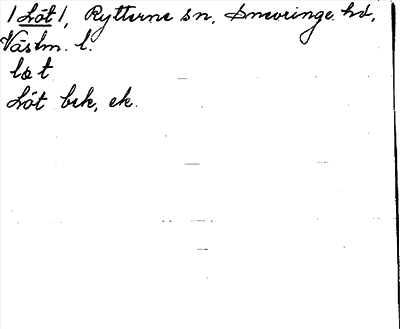 /Löt/, Rytterne sn, Snevringe hd,
Västm. l.
lø t
Löt bek, ek.